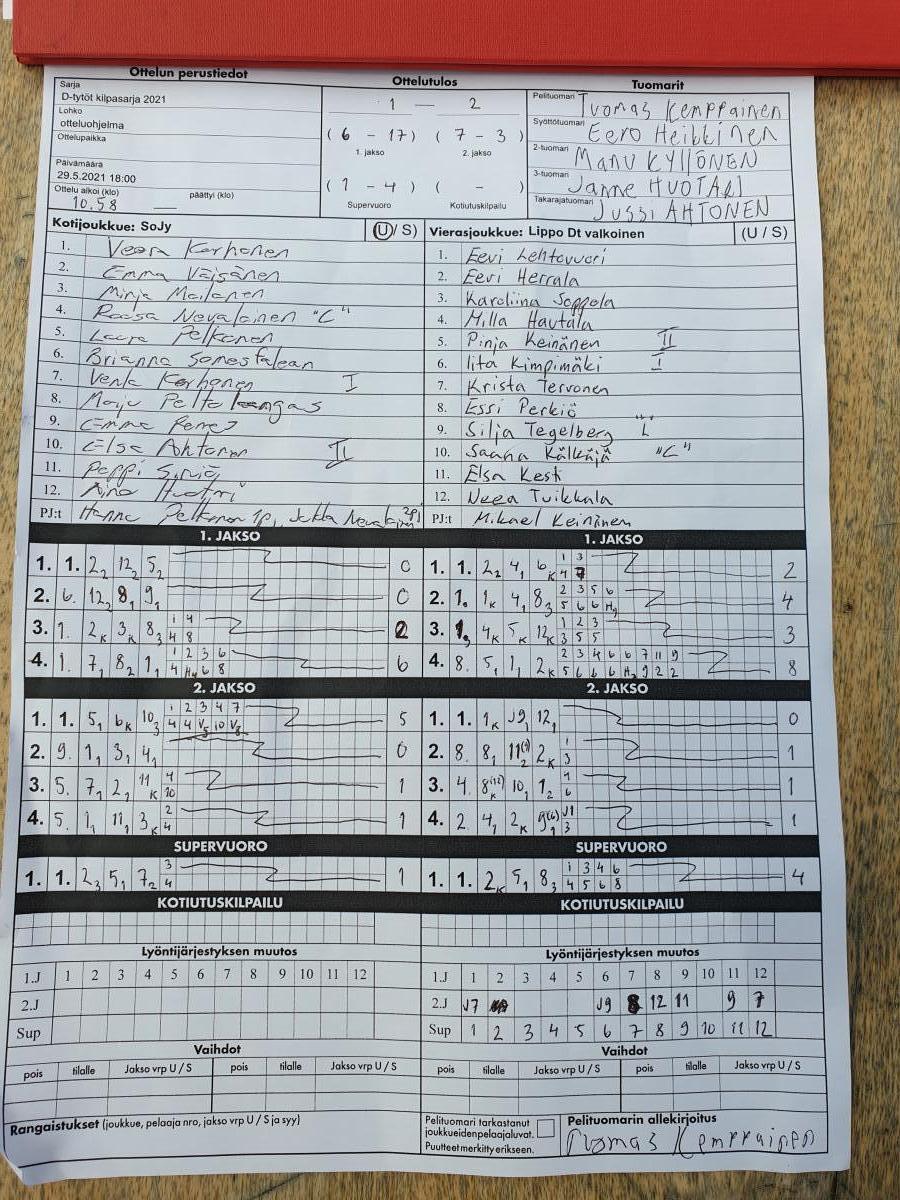 Ottelun perustiedot
Ottelutulos
Tuomarit
Sarja
D-tytöt kilpasarja 2021
Lohko
otteluohjelma
Ottelupaikka
Päivämäärä
29.5.2021 18:00
Ottelu alkoi (klo) päättyi (klo)
10.58
1 — 2
( 6 - 17 ) ( 7 - 3 )
1. jakso 2. jakso
( 1 - 4 ) ( - )
Supervuoro Kotiutuskilpailu
Pelituomari Tuomas Kemppainen
Syöttötuomari Eero Heikkinen
2-tuomari Manu KYLLÖNEN
3-tuomari Janne HUOTARI
Takarajatuomari JUSSI AHTONEN
Kotijoukkue: SoJy (U/ S)
1. Veera Korhonen
2. Emma Väisänen
3. Minja Moilanen
4. Roosa Nevalainen "C"
5. Laura Pelkonen
6. Brianna
7. Venla Korhonen I
8. Maiju Peltokangas
9. Emma
10. Elsa Ahtonen II
11. Peppi
12. Aino Huotari
PJ:t Hanna Pelkonen 1p, Jukka Nevalainen 2pj
Vierasjoukkue: Lippo Dt valkoinen (U / S)
1. Eevi Lehtovuori
2. Eevi Herrala
3. Karoliina Seppola
4. Milla Hautala
5. Pinja Keinänen II
6. Iita Kimpimäki I
7. Krista Tervonen
8. Essi Perkiö
9. Silja Tegelberg "L"
10. Saana Kälkäjä "C"
11. Elsa Kesti
12. Neea Tuikkala
PJ:t Mikael Keinänen
1. JAKSO
1. 1. 2₂ 12₂ 5₂ 0
2. 6. 12₂ 8₁ 9₁ 0
3. 1. 2K 3K 8₃ 1 4 2
4 8
4. 1. 7₁ 8₂ 1₁ 1 2 3 6 6
4 H4 6 8
1. JAKSO
1. 1. 2₂ 4₁ 6K 1 3 2
4 7
2. 1. 1K 4₁ 8₃ 2 3 5 6 4
5 6 6 H9
3. 1. 4K 5K 12K 1 2 3 3
3 5 5
4. 8. 5₁ 1₁ 2K 2 3 4 6 6 7 11 9 8
5 6 6 6 H2 9 2 2
2. JAKSO
1. 1. 5₁ 6K 10₃ 1 2 3 4 7 5
4 4 V5 10 V8
2. 9. 1₁ 3₁ 4₁ 0
3. 5. 7₂ 2₁ 11K 4 1
10
4. 5. 1₁ 11₁ 3K 2 1
4
2. JAKSO
1. 1. 1K J9₁ 12₁ 0
2. 8. 8₁ 11₂ 2K 1 1
3
3. 4. 8K(12) 10₁ 1₂ 1
6
4. 2. 4₁ 2K J1 1
3
SUPERVUORO
1. 1. 2₃ 5₁ 7₂ 3 1
4
SUPERVUORO
1. 1. 2K 5₁ 8₃ 1 3 4 6 4
4 5 6 8
KOTIUTUSKILPAILU
KOTIUTUSKILPAILU
Lyöntijärjestyksen muutos
1.J 1 2 3 4 5 6 7 8 9 10 11 12
2.J
Sup
Lyöntijärjestyksen muutos
1.J 1 2 3 4 5 6 7 8 9 10 11 12
2.J J7 J9 8 12 11 9 7
Sup 1 2 3 4 5 6 7 8 9 10 11 12
Vaihdot
pois tilalle Jakso vrp U / S pois tilalle Jakso vrp U / S
Vaihdot
pois tilalle Jakso vrp U / S pois tilalle Jakso vrp U / S
Rangaistukset (joukkue, pelaaja nro, jakso vrp U / S ja syy)
Pelituomari tarkastanut
joukkueidenpelaajaluvat.
Puutteet merkitty erikseen.
Pelituomarin allekirjoitus
Tuomas Kemppainen